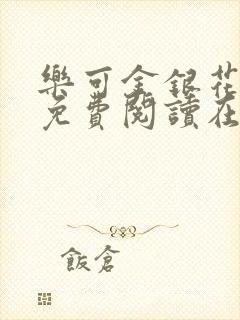 樂可金銀花
免費閱讀在
飯倉